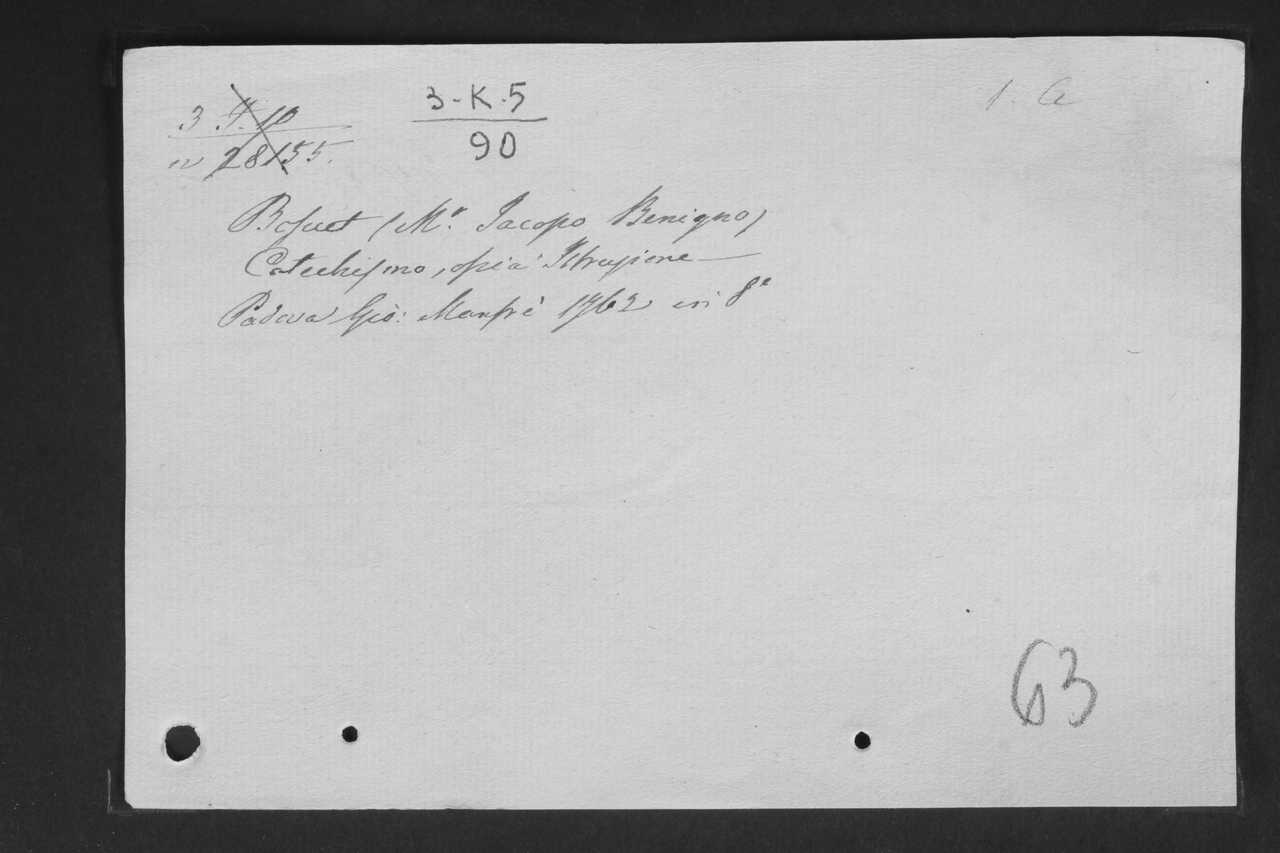 3-K-5
1. a
90
n 28155.
Bossuet (Mr. Jacopo Benigno)
Catechismo, ossia Istruzione —
Padova Gio: Manfrè 1762 in 8°
63